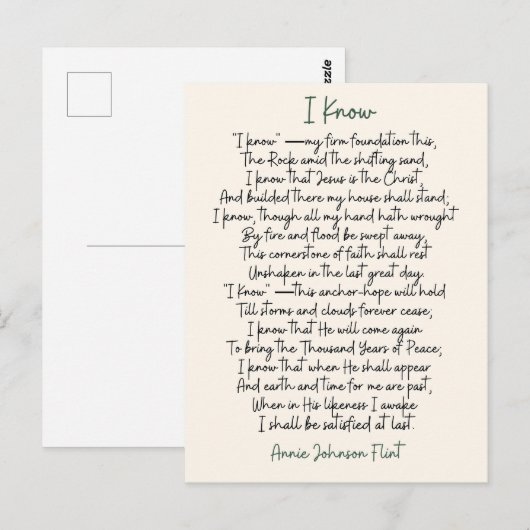 I Know
"I know" —my firm foundation this,
The Rock amid the shifting sand,
I know that Jesus is the Christ,
And builded there my house shall stand;
I know, though all my hand hath wrought
By fire and flood be swept away,
This cornerstone of faith shall rest
Unshaken in the last great day.
"I Know" —this anchor-hope will hold
Till storms and clouds forever cease;
I know that He will come again
To bring the Thousand Years of Peace;
I know that when He shall appear
And earth and time for me are past,
When in His likeness I awake
I shall be satisfied at last.
Annie Johnson Flint